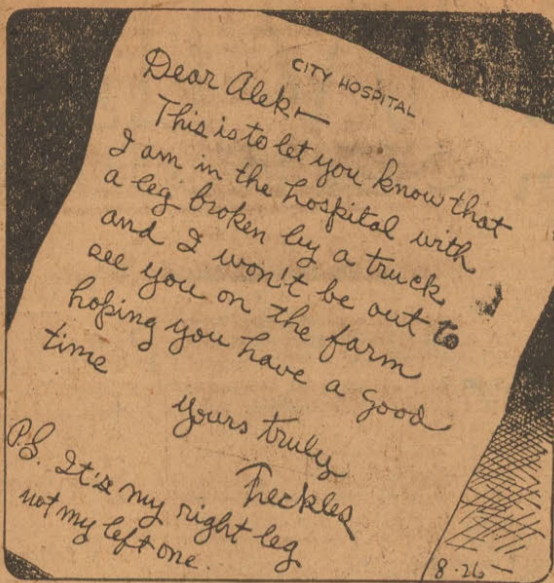 CITY HOSPITAL
Dear Alek—
This is to let you know that
I am in the hospital with
a leg broken by a truck
and I won't be out to
see you on the farm
hoping you have a good
time
yours truly
Freckles
P.S. It's my right leg
not my left one.
8-26